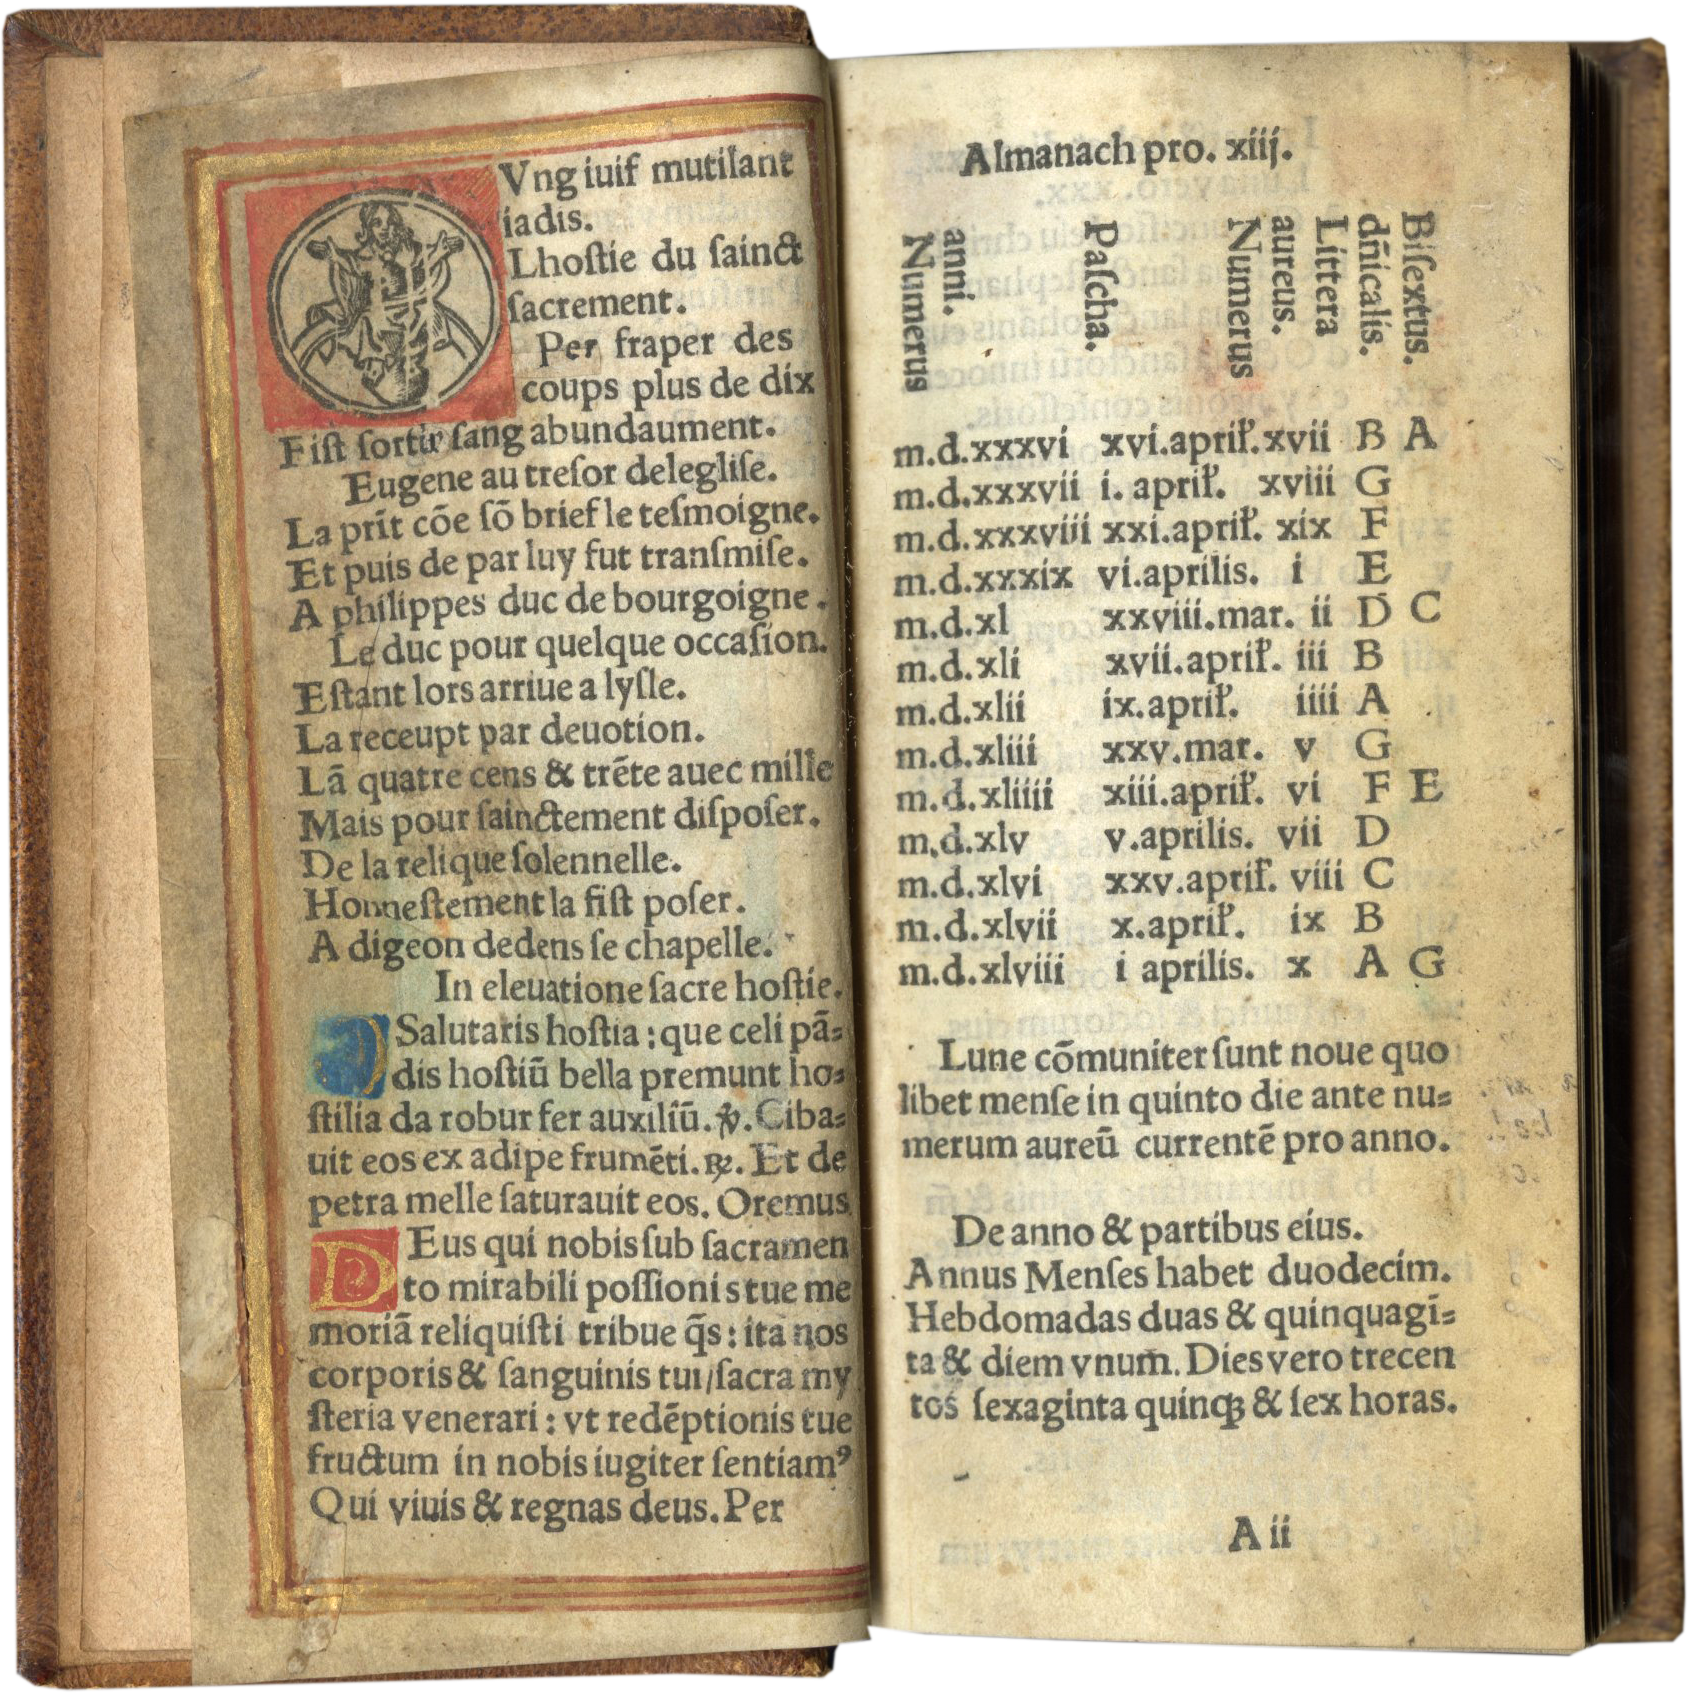 Vng iuif mutilant
iadis.
Lhoſtie du ſainct
ſacrement.
Per fraper des
coups plus de dix
Fiſt ſortir ſang abundaument.
Eugene au treſor delegliſe.
La prīt cōe ſō brief le teſmoigne.
Et puis de par luy fut tranſmiſe.
A philippes duc de bourgoigne.
Le duc pour quelque occaſion.
Eſtant lors arriue a lyſle.
La receupt par deuotion.
Lā quatre cens & trēte auec mille
Mais pour ſainctement diſpoſer.
De la relique ſolennelle.
Honneſtement la fiſt poſer.
A digeon dedens ſe chapelle.
In eleuatione ſacre hoſtie.
O Salutaris hoſtia : que celi pā⸗
dis hoſtiū bella premunt ho⸗
ſtilia da robur fer auxiliū. ℣. Ciba⸗
uit eos ex adipe frumēti. ℟. Et de
petra melle ſaturauit eos. Oremus
DEus qui nobis ſub ſacramen
to mirabili poſſionis tue me
moriā reliquiſti tribue q̄s : ita nos
corporis & ſanguinis tui/ſacra my
ſteria venerari : vt redēptionis tue
fructum in nobis iugiter ſentiamꝰ
Qui viuis & regnas deus. Per
Almanach pro. xiij.
Numerus anni. Paſcha. Numerus aureus. Littera dn̄icalis. Biſextus.
m.d.xxxvi xvi.aprił. xvii B A
m.d.xxxvii i. aprił. xviii G
m.d.xxxviii xxi.aprił. xix F
m.d.xxxix vi.aprilis. i E
m.d.xl xxviii.mar. ii D C
m.d.xli xvii.aprił. iii B
m.d.xlii ix.aprił. iiii A
m.d.xliii xxv.mar. v G
m.d.xliiii xiii.aprił. vi F E
m.d.xlv v.aprilis. vii D
m.d.xlvi xxv.aprił. viii C
m.d.xlvii x.aprił. ix B
m.d.xlviii i aprilis. x A G
Lune cōmuniter ſunt noue quo
libet menſe in quinto die ante nu⸗
merum aureū currentē pro anno.
De anno & partibus eius.
Annus Menſes habet duodecim.
Hebdomadas duas & quinquagī⸗
ta & diem vnum. Dies vero trecen
tos ſexaginta quinqꝫ & ſex horas.
A ii